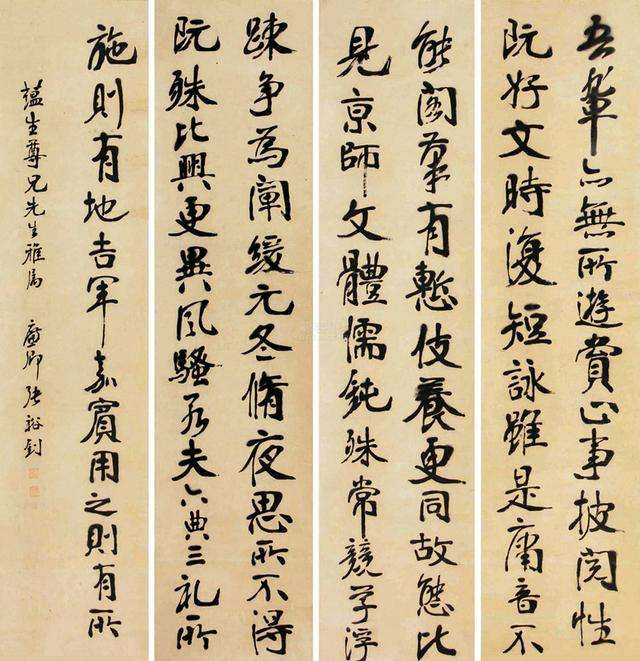 吾輩亦無所遊賞止事披閱性
既好文時復短詠雖是庸音不
能閣筆有慙伎養更同故態比
見京師文體儒鈍殊常競学浮
踈爭為闡緩元冬脩夜思所不得
既殊比興更異風騷若夫六典三礼所
施則有地吉軍嘉賓用之則有所
蘊生尊兄先生雅屬 廉卿張裕釗